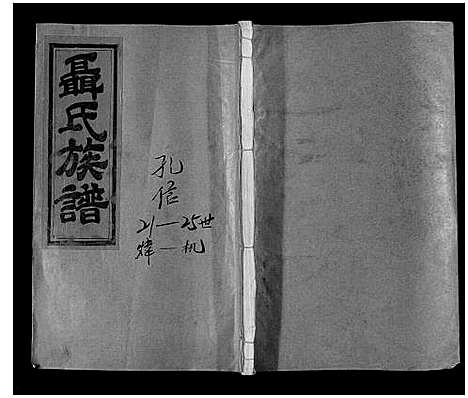 聶氏族譜
孔信
21—25世
煒—机